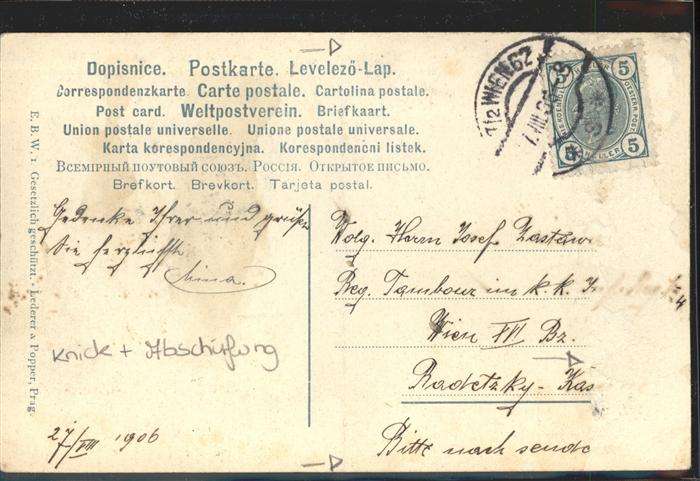 Dopisnice. Postkarte. Levelező-Lap.
Correspondenzkarte Carte postale. Cartolina postale.
Post card. Weltpostverein. Briefkaart.
Union postale universelle. Unione postale universale.
Karta korespondencyjna. Korespondenční lístek.
Всемірный почтовый союзъ. Россія. Открытое письмо.
Brefkort. Brevkort. Tarjeta postal.
E. B. W. 1 Gesetzlich geschützt. Lederer & Popper, Prag.
Gedenke Ihrer und grüße
Sie herzlichst
Knick + Abschürfung
27/VIII 1906
1/2 WIEN 62
5 5
5 5
Wolg. Herrn Josef
Reg. Tambour im k. k. I.
4
Wien VII Bz.
Radetzky-Kas
Bitte nach sende